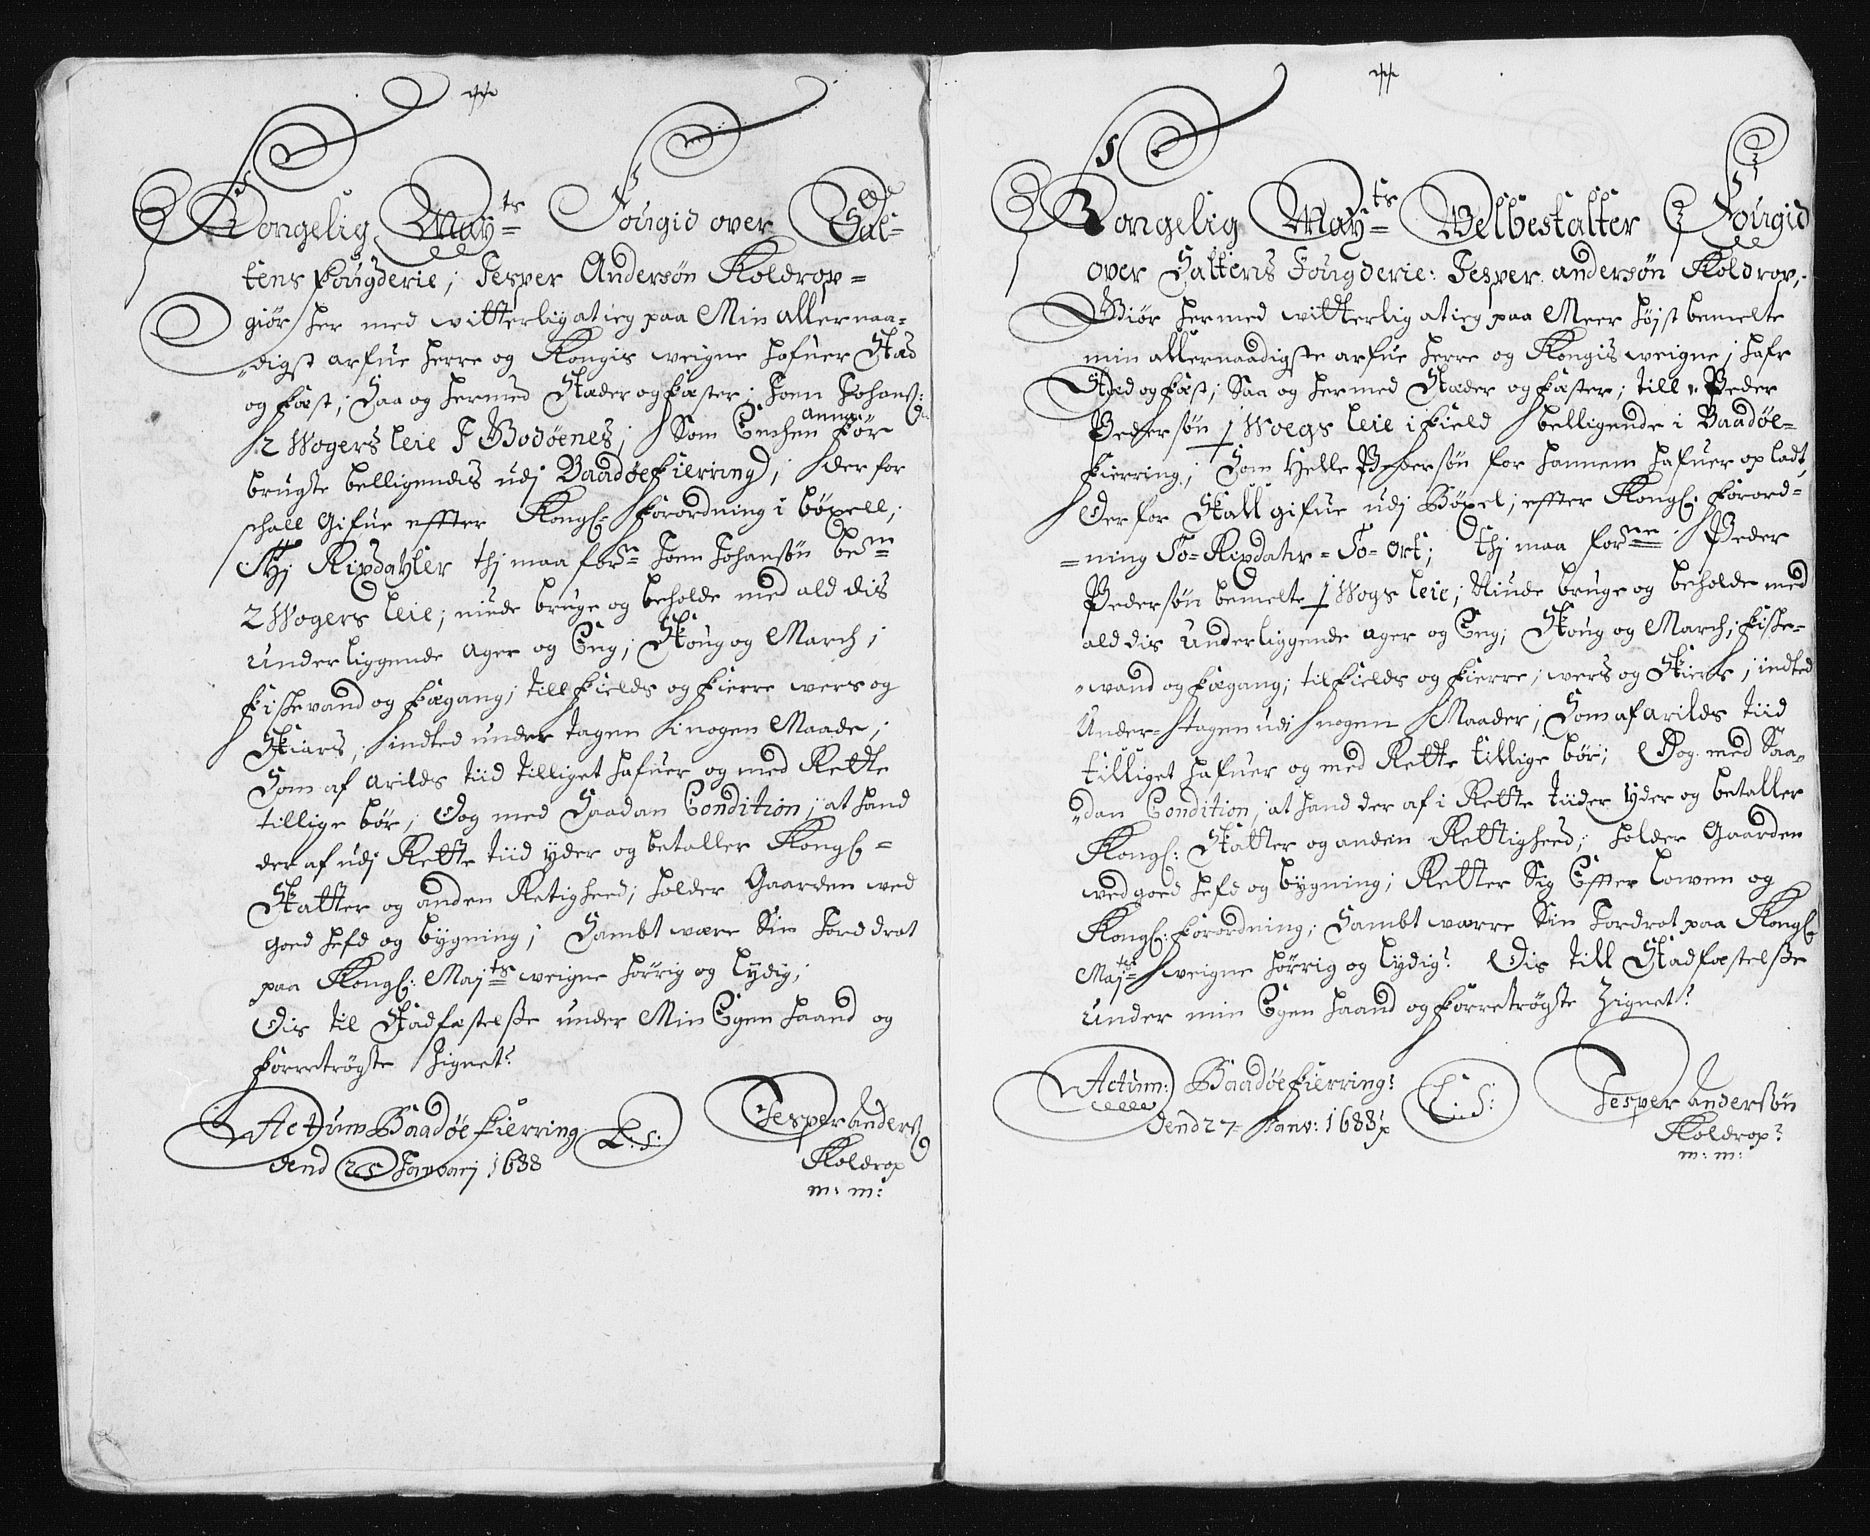 Kongelig Mayts Fougid over Sal-
tens fougderie; Jesper Andersøn Koldrop=
giør her med vitterlig at ieg paa Min allernaa-
digst arfue herre og Kongis weigne hafuer Sted
og fæst; Saa og hermed Stæder og fæster; Joen Johanß:
2 Wogers leie J Bodøenes; Som Enchen anna før
brugte belligendis udj Baadøefierring; der for
schall Gifue effter Kongl: forordning i bøxell;
Rixdayler thj maa forne Joen Johansøn bem
2 Wogers leie; niude bruge og beholde med ald dis
underliggende ager og Eng; Skoug og March;
fiskevand og fægang; till fields og fierre wers og
Skiærs; indted under tagen i nogen Maade;
Som af arilds tiid tilliget hafuer og med Rette
tillige bør; Dog med Saadan Condition; at hand
der af udj Rette tiid yder og betaller Kongl-
Skatter og anden Retigheed; holder Gaarden ved
goed hefd og bygning; Sambt være Sin Jorddrot
paa Kongl: Majts weigne hørrig og lydig;
Dis til Stadfæstelße under Min Egen haand og
forretrøgte Zignet:
Actum Baadøe fierring L: S: Jesper Anderß
dend 25 Janvarj 1688 Koldrop
m: m:
Kongelig Mayts Welbestalter Fougid
over Saltens Fougderie: Jesper andersøn Koldrop;
Giør hermed vitterlig at ieg paa Meer høyst bemelte
min allernaadigste arfue herre og Kongis weigne; hafr
Sted og fæst; Saa og hermed Stæder og fæster; till Peder
Pedersøn 1 Woegs leie i field belligende i Baadøe-
fierring; Som Helle Pedersøn for hannem hafuer opladt,
Derfor Skall gifue udj Bøxel; effter Kongl: forord-
=ning To= Rixdalr= To= ort; thj maa forne Peder
Pedersøn bemelte 1 Wogs leie; Niude bruge og beholde med
ald dis underliggende ager og Eng; Skoug og March; fiske-
wand og fægang; til fields og fierre; wers og Skiers; indted
Under= tagen udj nogen Maader; Som af arilds tiid
tilliget hafuer og med Rette tillige bør; Dog med Saa-
dan Condition; at hand der af i Rette tiider yder og betaller
Kongl: Skatter og anden Rettigheed; holder Gaarden
ved goed hefd og bygning; Retter Sig Effter lowen og
Kongl: forordning; Sambt wærre Sin Jordrot paa Kongl
Majts weigne hørrig og lydig: Dis till Stadfæstelße
under min Egen haand og forretrøgte Zignet:
Actum: Baadøefierring: L: S: Jesper andersøn
dend 27= Janv: 1688 Koldrop:
m: m: